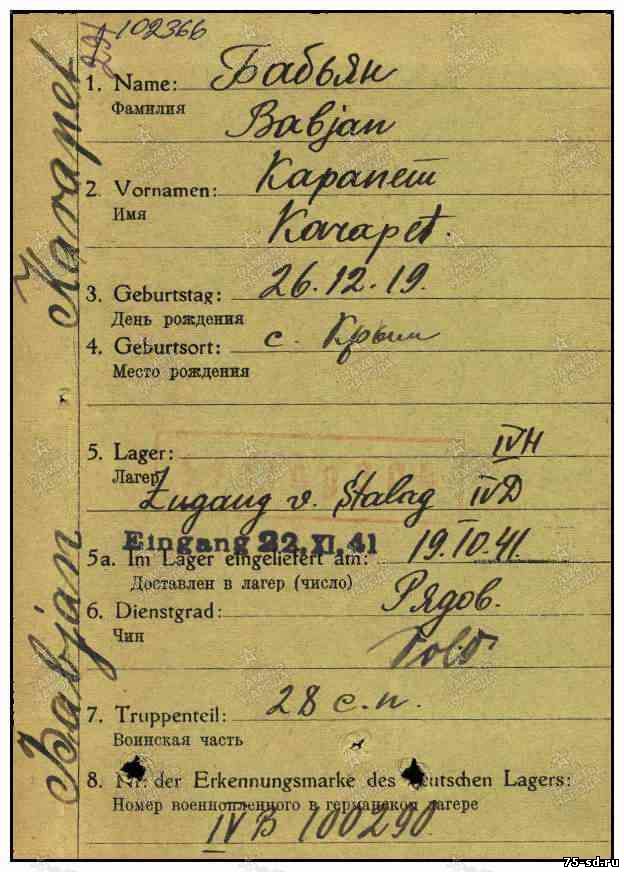 102366
1. Name: Бабьян
Фамилия
Babjan
2. Vornamen: Карапет
Имя
Karapet.
3. Geburtstag: 26.12.19.
День рождения
4. Geburtsort: с. Крым
Место рождения
5. Lager: IVH
Лагерь
Zugang v. Stalag IVD
Eingang 22. XI. 41
5a. Im Lager eingeliefert am: 19.10.41.
Доставлен в лагерь (число)
6. Dienstgrad: Рядов.
Чин
Sold.
7. Truppenteil: 28 с.п.
Воинская часть
8. Nr. der Erkennungsmarke des deutschen Lagers:
Номер военнопленного в германском лагере
IVB 100290
Babjan Karapet
75-sd.ru